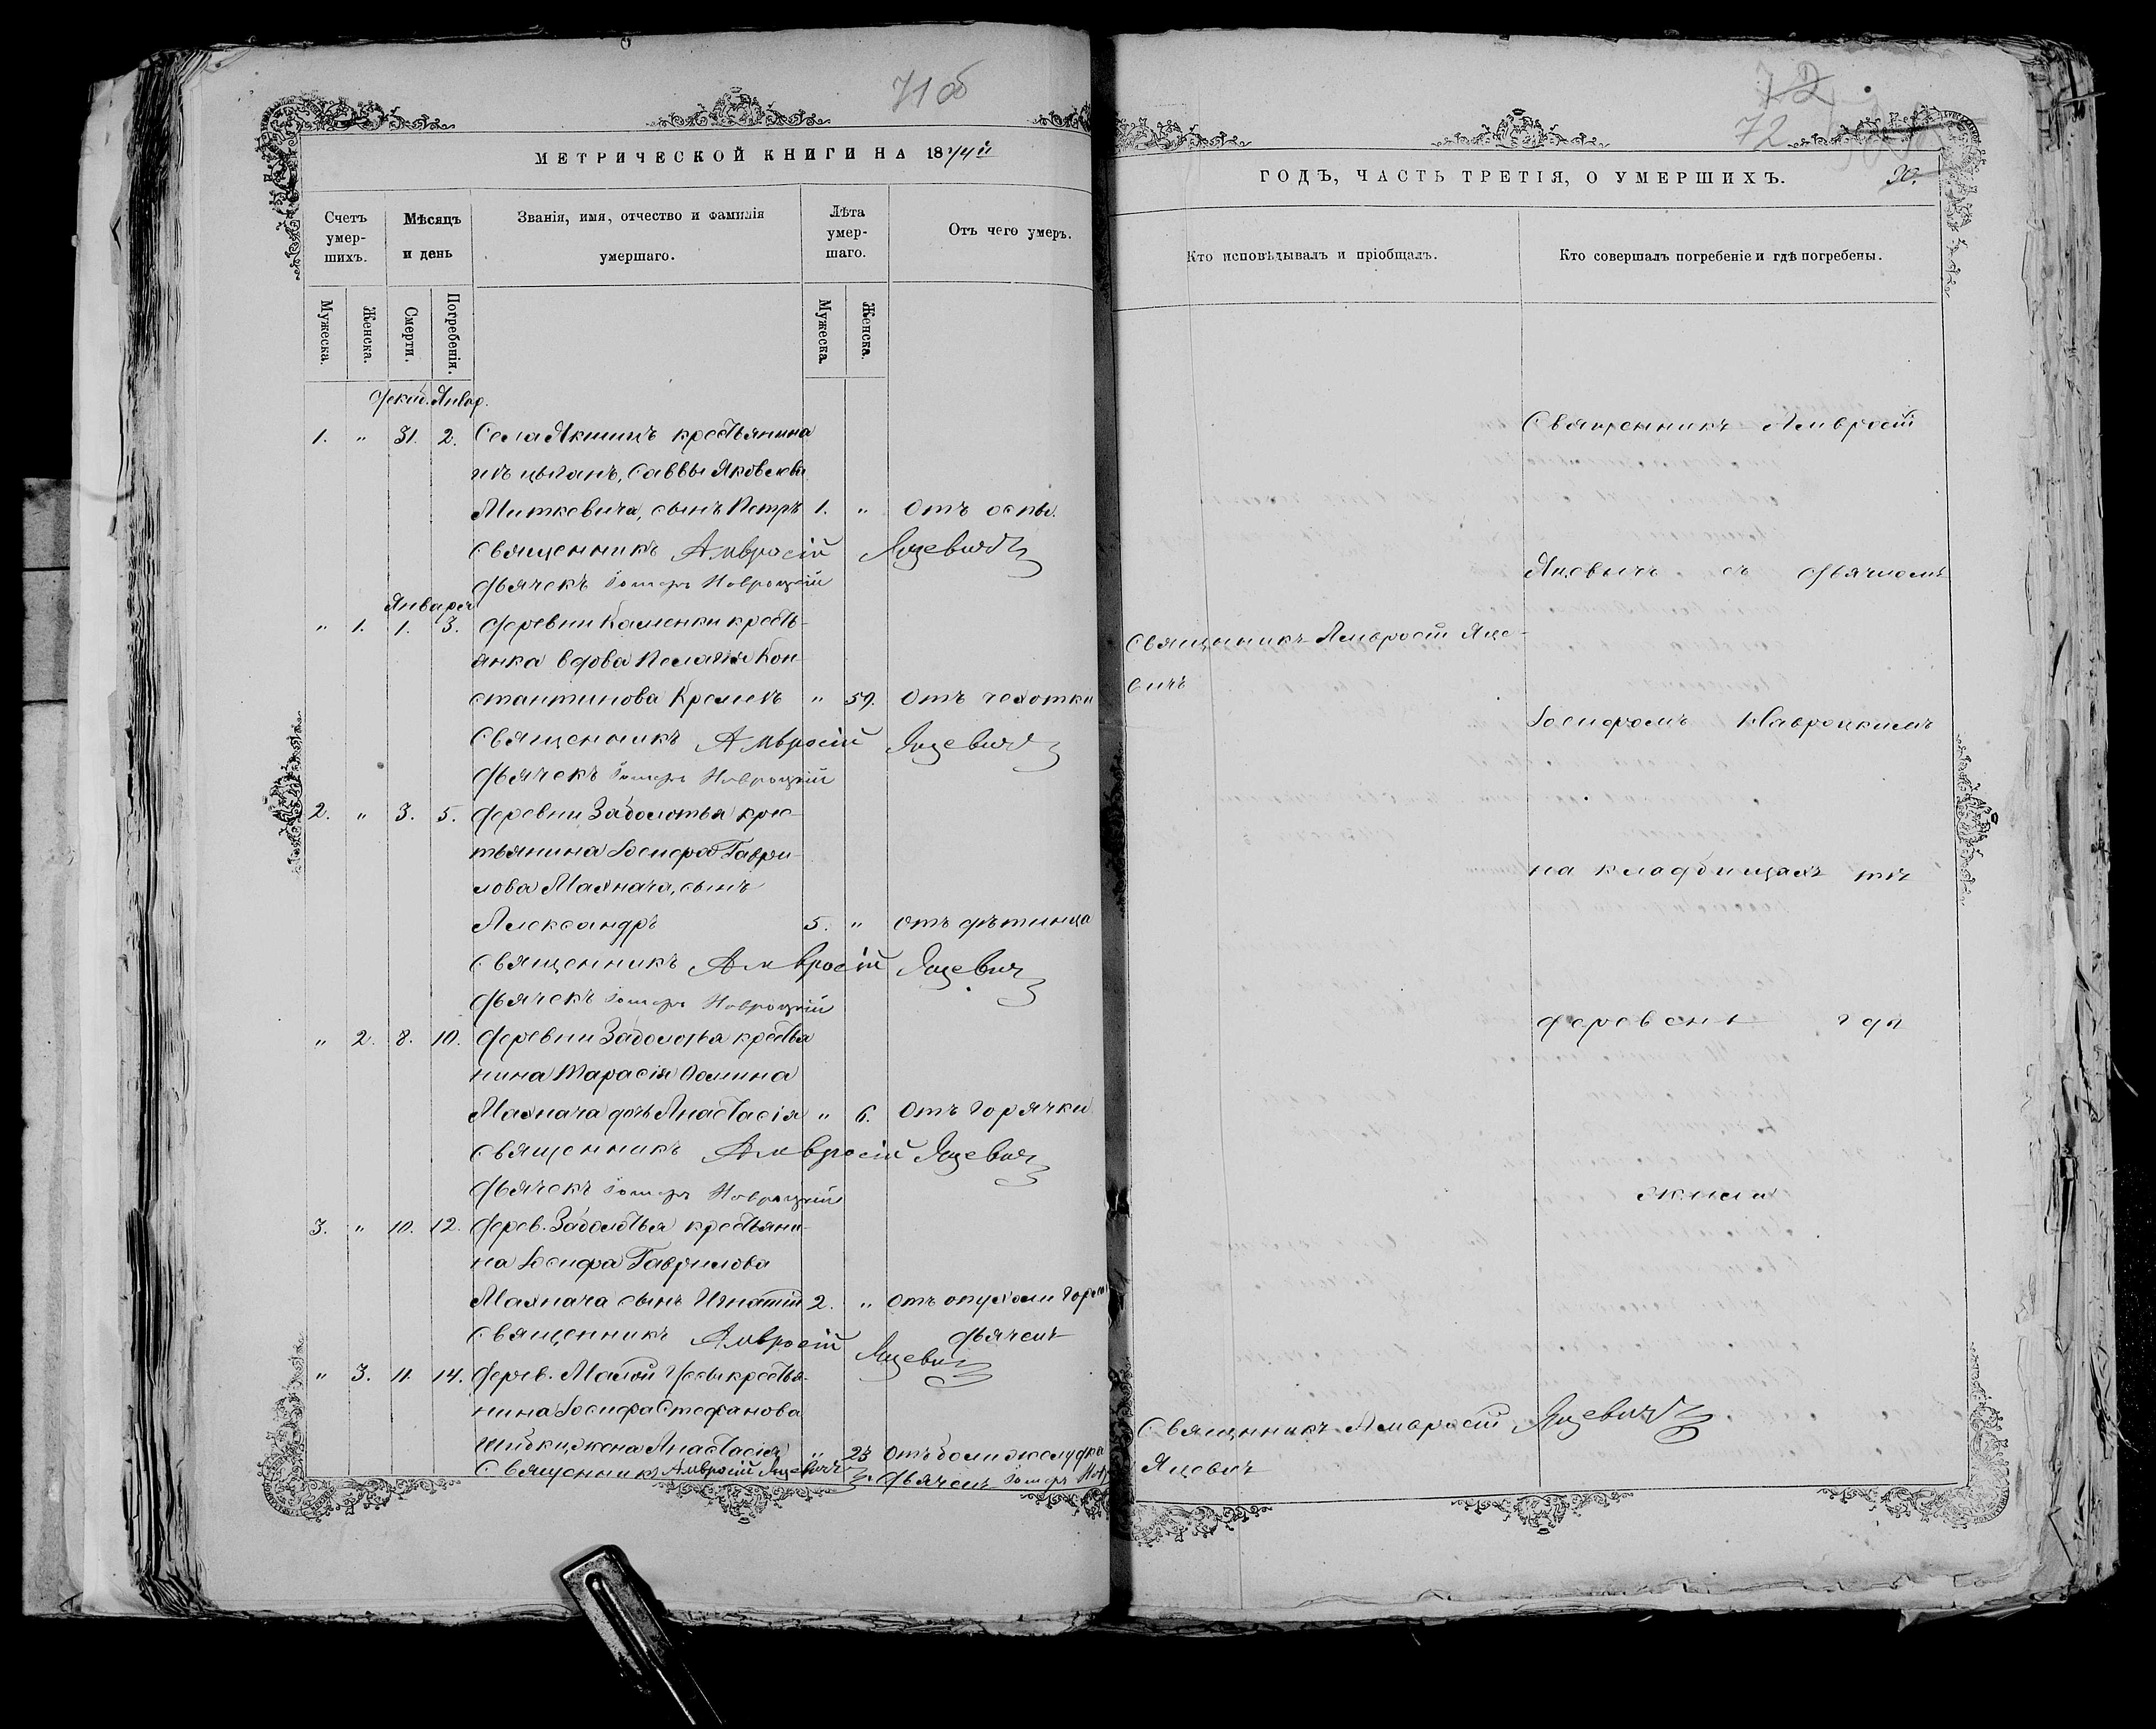 71 об
МЕТРИЧЕСКОЙ КНИГИ НА 1874й
Счетъ умер-шихъ.
Мѣсяцъ и день
Званія, имя, отчество и фамилія умершаго.
Лѣта умер-шаго.
Отъ чего умеръ.
Мужеска.
Женска.
Смерти.
Погребенія.
Мужеска.
Женска.
Декаб. Январ.
1. " 31. 2. Села Якшицъ крестьянина
изъ цыганъ, Саввы Яковлева
Миткевича, сынъ Петръ 1. " отъ оспы.
Священникъ Амвросій Яцевичъ
Дьячекъ Іосифъ Навроцкій
Января
" 1. 1. 3. Деревни Каменки кресть-
янка вдова Пелагія Кон-
стантинова " 59. отъ чехотки
Священникъ Амвросій Яцевичъ
Дьячекъ Іосифъ Навроцкій
2. " 3. 5. Деревни Заболотья крес-
тьянина Іосифа Гаври-
лова Махнача, сынъ
Александръ 5. " отъ дѣтинца
Священникъ Амвросій Яцевичъ
Дьячекъ Іосифъ Навроцкій
" 2. 8. 10. Деревни Заболотья крестья
нина Тарасія Ѳомина
Махнача дочь Анастасія " 6. отъ горячки
Священникъ Амвросій Яцевичъ
Дьячекъ Іосифъ Навроцкій
3. " 10. 12. Дерев. Заболотья крестьяни-
на Іосифа Гаврилова
Махнача сынъ Игнатій 2. " отъ опухоли горла
Священникъ Амвросій Яцевичъ Дьячекъ
" 3. 11. 14. Дерев. Малой Усы крестья-
нина Іосифа Стефанова
жена Анастасія " 23 отъ боли желудка
Священникъ Амвросій Яцевичъ Дьячекъ Іосифъ Навр
72
72
ГОДЪ, ЧАСТЬ ТРЕТІЯ, О УМЕРШИХЪ.
90.
Кто исповѣдывалъ и пріобщалъ.
Кто совершалъ погребеніе и гдѣ погребены.
Священникъ Амвросій
Яцевичъ съ Дьячкомъ
Священникъ Амвросій Яце-
вичъ
Іосифомъ Навроцкимъ
на кладбищахъ тѣхъ
деревень гдѣ
жили
Священникъ Амвросій Яцевичъ
Яцевичъ